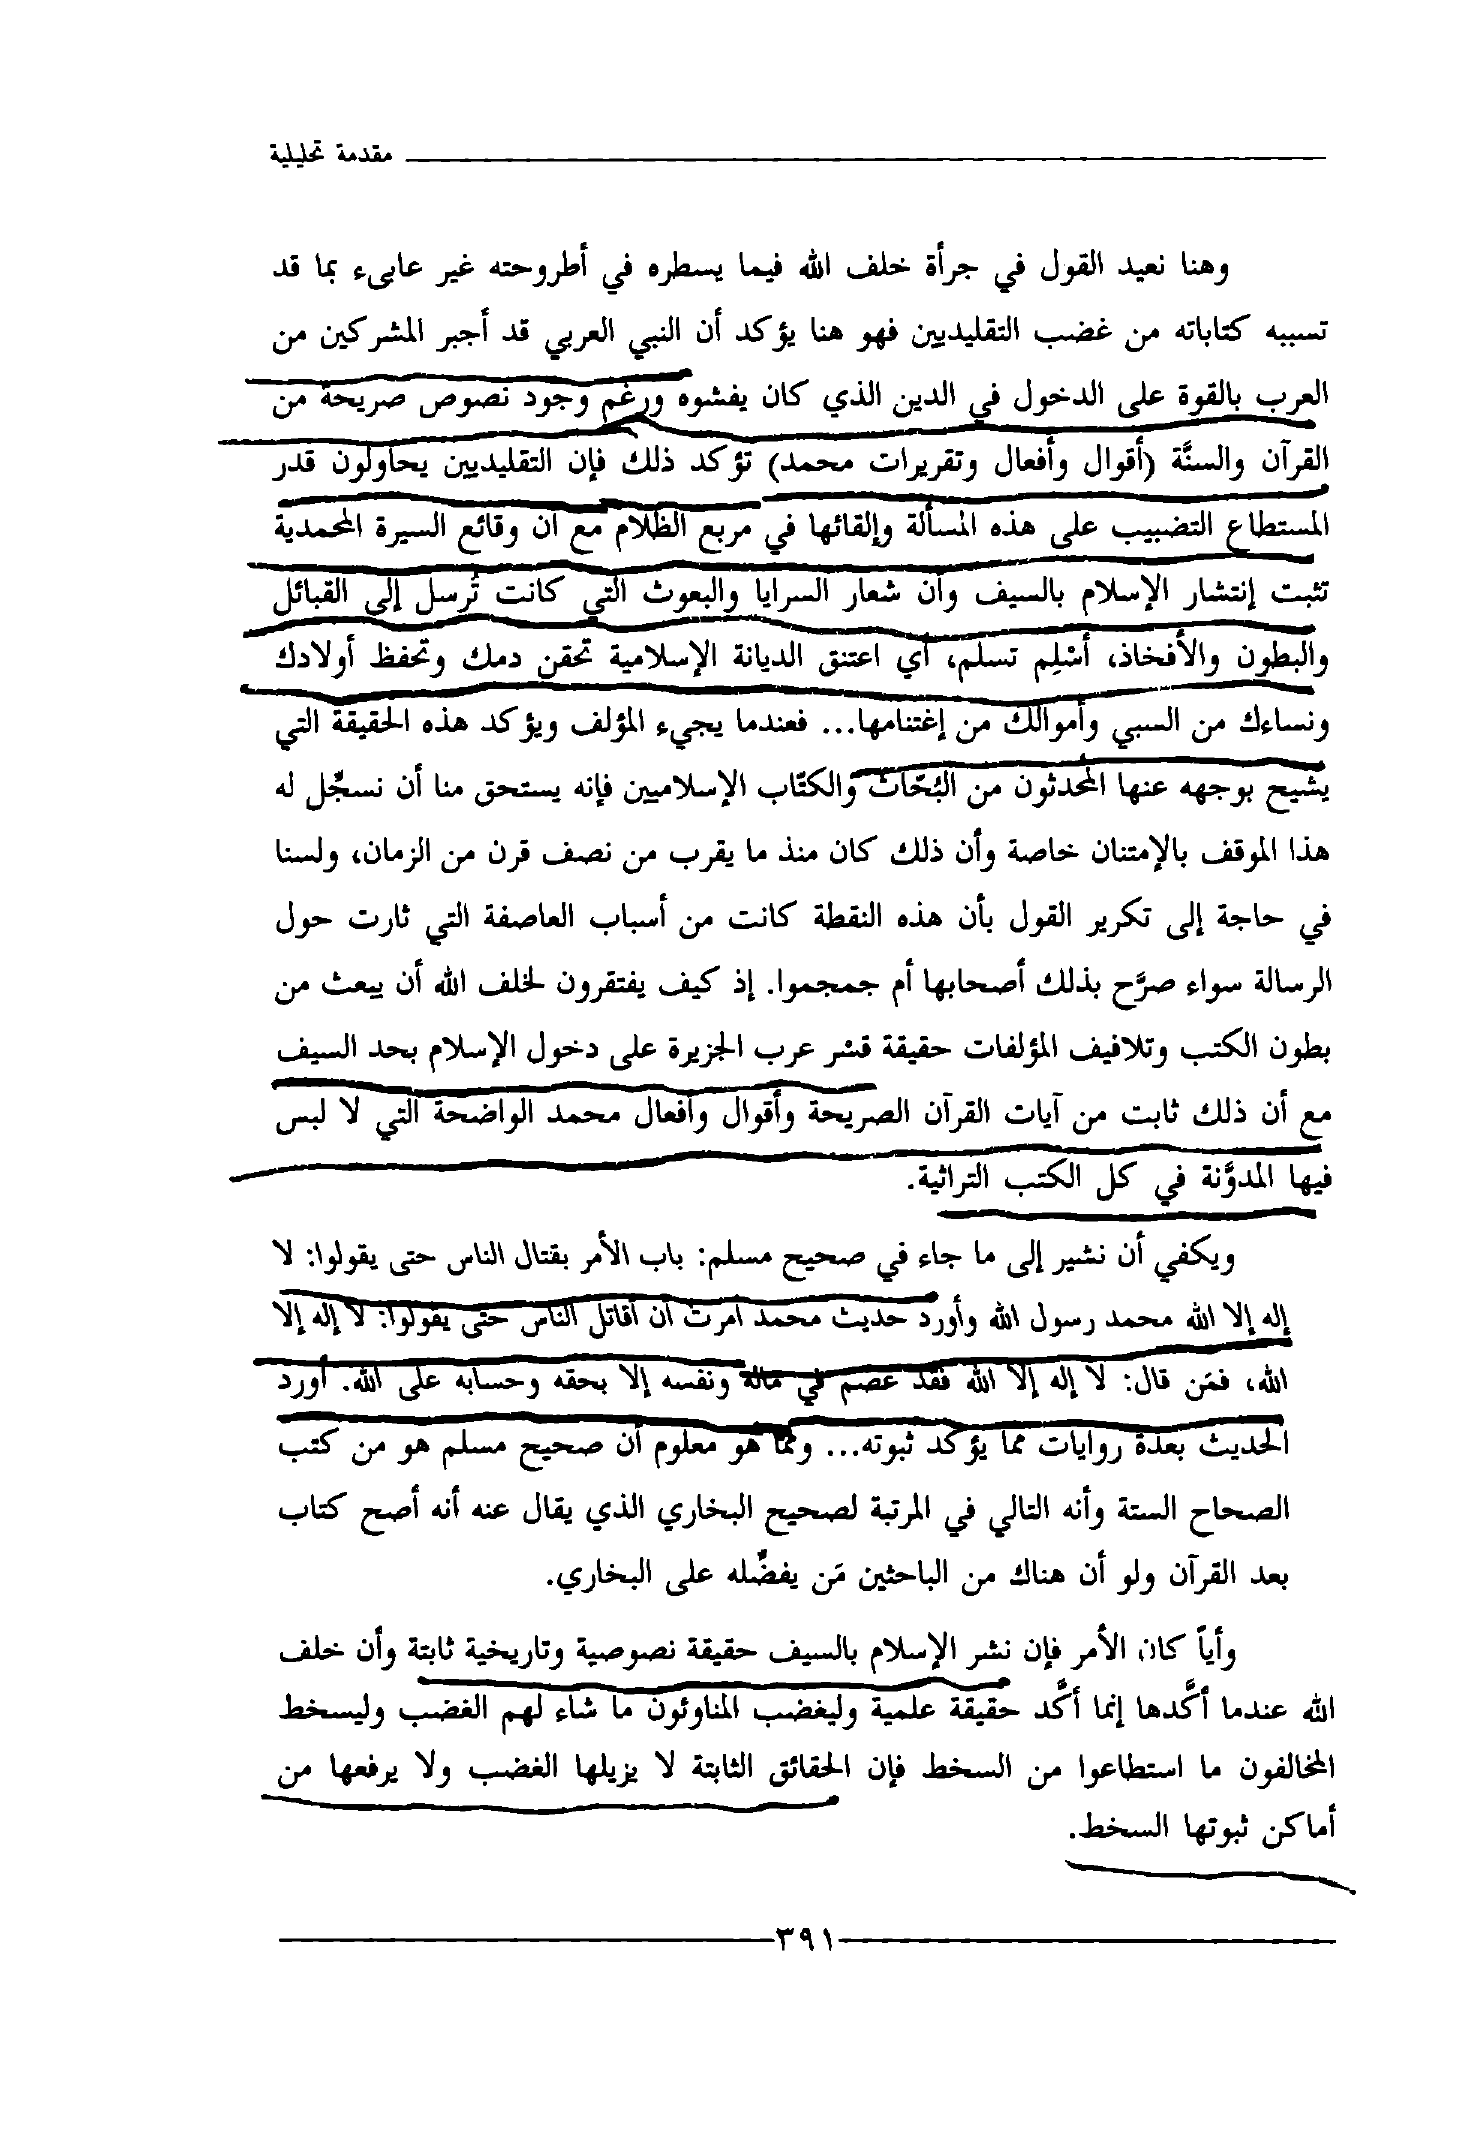 مقدمة تحليلية
وهنا نعيد القول في جرأة خلف الله فيما يسطره في أطروحته غير عابىء بما قد
تسببه كتاباته من غضب التقليديين فهو هنا يؤكد أن النبي العربي قد أجبر المشركين من
العرب بالقوة على الدخول في الدين الذي كان يفشوه ورغم وجود نصوص صريحة من
القرآن والسنَّة (أقوال وأفعال وتقريرات محمد) تؤكد ذلك فإن التقليديين يحاولون قدر
المستطاع التضبيب على هذه المسألة وإلقائها في مربع الظلام مع أن وقائع السيرة المحمدية
تثبت إنتشار الإسلام بالسيف وأن شعار السرايا والبعوث التي كانت تُرسل إلى القبائل
والبطون والأفخاذ، أسْلِم تسلم، أي اعتنق الديانة الإسلامية تحقن دمك وتحفظ أولادك
ونساءك من السبي وأموالك من إغتنامها... فعندما يجيء المؤلف ويؤكد هذه الحقيقة التي
يشيح بوجهه عنها المُحدثون من البُحّاث والكتّاب الإسلاميين فإنه يستحق منا أن نسجِّل له
هذا الموقف بالإمتنان خاصة وأن ذلك كان منذ ما يقرب من نصف قرن من الزمان، ولسنا
في حاجة إلى تكرير القول بأن هذه النقطة كانت من أسباب العاصفة التي ثارت حول
الرسالة سواء صرَّح بذلك أصحابها أم جمجموا. إذ كيف يفتقرون لخلف الله أن يبعث من
بطون الكتب وتلافيف المؤلفات حقيقة قسْر عرب الجزيرة على دخول الإسلام بحد السيف
مع أن ذلك ثابت من آيات القرآن الصريحة وأقوال وأفعال محمد الواضحة التي لا لبس
فيها المدوَّنة في كل الكتب التراثية.
ويكفي أن نشير إلى ما جاء في صحيح مسلم: باب الأمر بقتال الناس حتى يقولوا: لا
إله إلا الله محمد رسول الله وأورد حديث محمد أمرت أن أقاتل الناس حتى يقولوا: لا إله إلا
الله، فمَن قال: لا إله إلا الله فقد عصم في ماله ونفسه إلا بحقه وحسابه على الله. أورد
الحديث بعدة روايات مما يؤكد ثبوته... وممّا هو معلوم أن صحيح مسلم هو من كتب
الصحاح الستة وأنه التالي في المرتبة لصحيح البخاري الذي يقال عنه أنه أصح كتاب
بعد القرآن ولو أن هناك من الباحثين مَن يفضِّله على البخاري.
وأياً كان الأمر فإن نشر الإسلام بالسيف حقيقة نصوصية وتاريخية ثابتة وأن خلف
الله عندما أكَّدها إنما أكَّد حقيقة علمية وليغضب المناوئون ما شاء لهم الغضب وليسخط
المخالفون ما استطاعوا من السخط فإن الحقائق الثابتة لا يزيلها الغضب ولا يرفعها من
أماكن ثبوتها السخط.
٣٩١